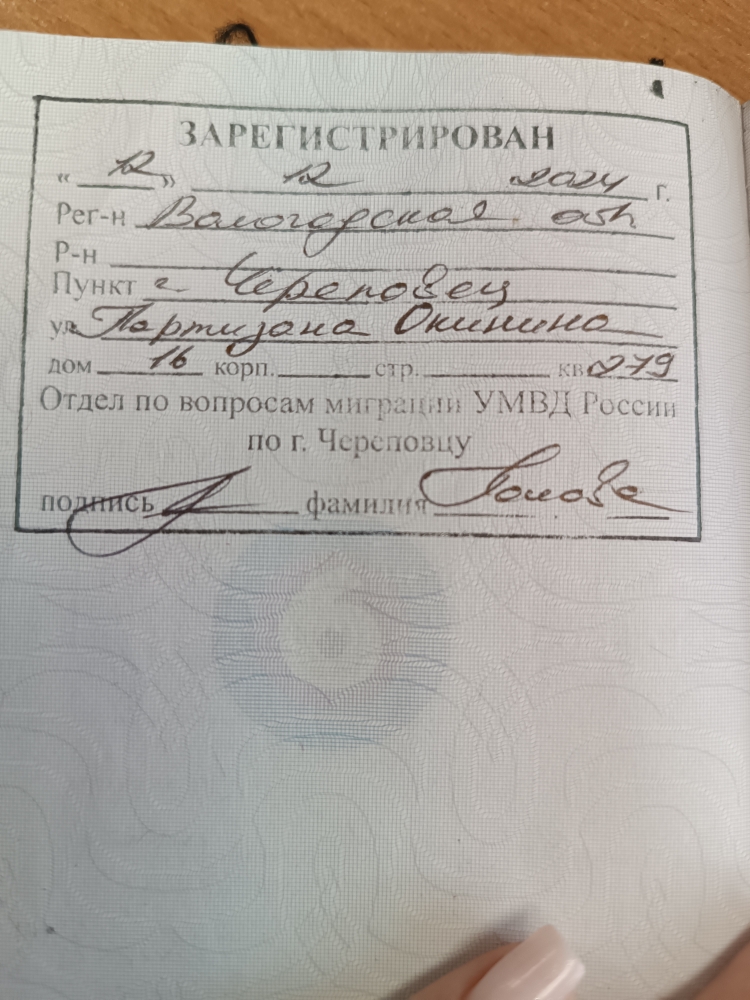 ЗАРЕГИСТРИРОВАН
« 12 » 12 2024 г.
Рег-н Вологодская обл
Р-н
Пункт г. Череповец
ул Партизана Окинина
дом 16 корп. стр. кв 279
Отдел по вопросам миграции УМВД России
по г. Череповцу
подпись фамилия